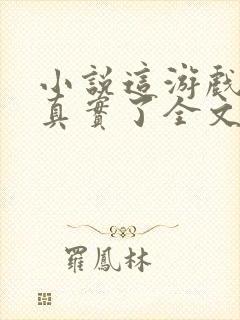 小説這游戲
真實了全文
羅鳳林